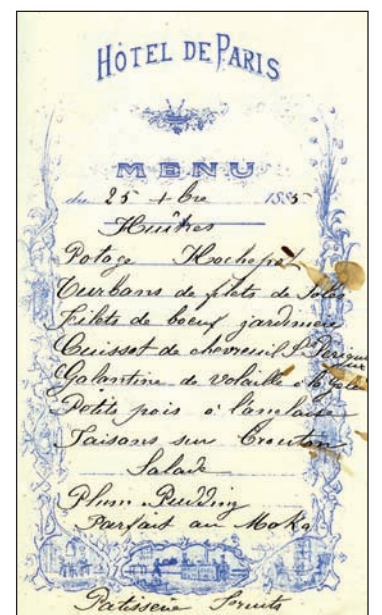 HÔTEL DE PARIS
MENU
du 25 + bre 1885
Huîtres
Potage Hochepot
Turbans de filets de Soles
Filets de boeuf jardinière
Cuissot de chevreuil Sce Périgueux
Galantine de volaille à la gelée
Petits pois à l'anglaise
Faisans sur Crouton
Salade
Plum Pudding
Parfait au Moka
Patisserie Fruits